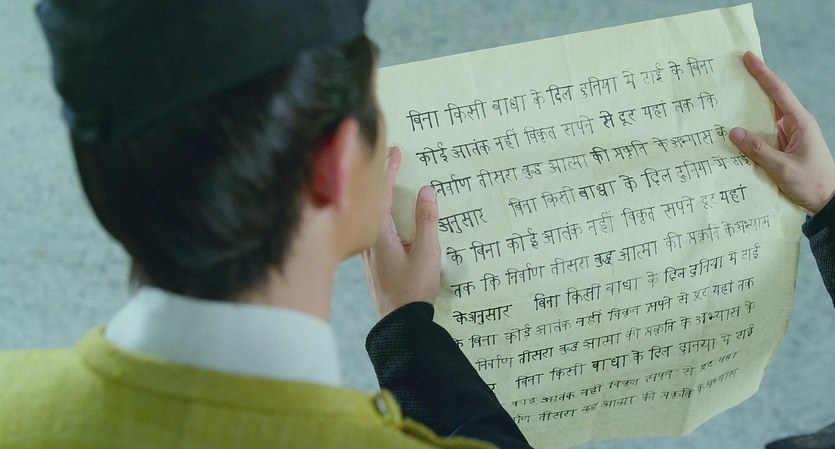 बिना किसी बाधा के दिल दुनिया में टाई के बिना
कोई आतंक नहीं विकृत सपने से दूर यहां तक कि
निर्वाण तीसरा बुद्ध आत्मा की प्रकृति के अभ्यास के
अनुसार बिना किसी बाधा के दिल दुनिया में टाई
के बिना कोई आतंक नहीं विकृत सपने दूर यहां
तक कि निर्वाण तीसरा बुद्ध आत्मा की प्रकृति के अभ्यास
के अनुसार बिना किसी बाधा के दिल दुनिया में टाई
के बिना कोई आतंक नहीं विकृत सपने से दूर यहां तक
निर्वाण तीसरा बुद्ध आत्मा की प्रकृति के अभ्यास के
बिना किसी बाधा के दिल दुनिया में टाई
आतंक नहीं विकृत सपने से दूर यहां
तीसरा बुद्ध आत्मा की प्रकृति के अभ्यास